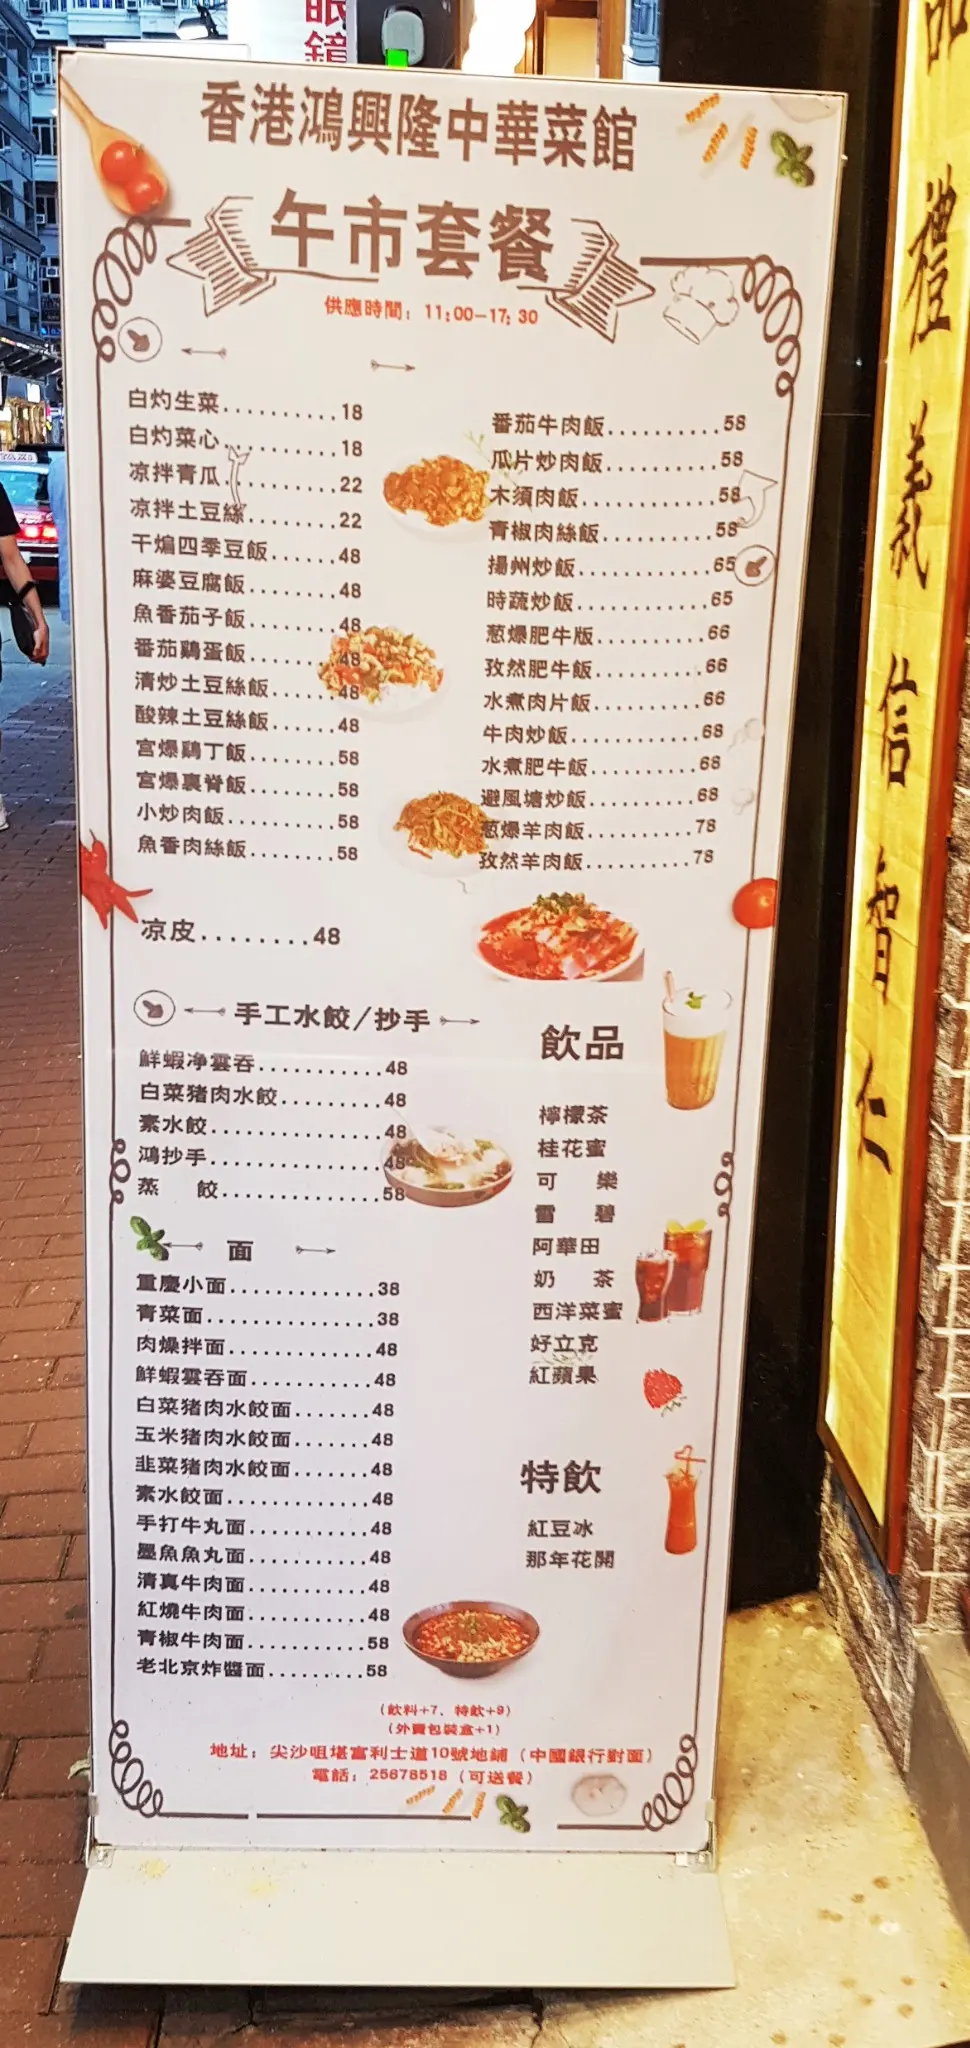 眼鏡
香港鴻興隆中華菜館
午市套餐
供應時間：11:00-17:30
白灼生菜..........18
白灼菜心..........18
凉拌青瓜..........22
凉拌土豆絲........22
干煸四季豆飯......48
麻婆豆腐飯........48
魚香茄子飯........48
番茄鷄蛋飯........48
清炒土豆絲飯......48
酸辣土豆絲飯......48
宮爆鷄丁飯........58
宮爆裏脊飯........58
小炒肉飯..........58
魚香肉絲飯........58
凉皮........48
番茄牛肉飯..........58
瓜片炒肉飯..........58
木須肉飯............58
青椒肉絲飯..........58
揚州炒飯............65
時蔬炒飯............65
葱爆肥牛版..........66
孜然肥牛飯..........66
水煮肉片飯..........66
牛肉炒飯............68
水煮肥牛飯..........68
避風塘炒飯..........68
葱爆羊肉飯..........78
孜然羊肉飯..........78
手工水餃/抄手
鮮蝦净雲吞...........48
白菜猪肉水餃.........48
素水餃...............48
鴻抄手...............48
蒸 餃..............58
面
重慶小面.............38
青菜面...............38
肉燥拌面.............48
鮮蝦雲吞面...........48
白菜猪肉水餃面.......48
玉米猪肉水餃面.......48
韭菜猪肉水餃面.......48
素水餃面.............48
手打牛丸面...........48
墨魚魚丸面...........48
清真牛肉面...........48
紅燒牛肉面...........48
青椒牛肉面...........58
老北京炸醬面.........58
飲品
檸檬茶
桂花蜜
可 樂
雪 碧
阿華田
奶 茶
西洋菜蜜
好立克
紅蘋果
特飲
紅豆冰
那年花開
（飲料+7、特飲+9）
（外賣包裝盒+1）
地址：尖沙咀堪富利士道10號地鋪（中國銀行對面）
電話：25678518（可送餐）
禮義信智仁